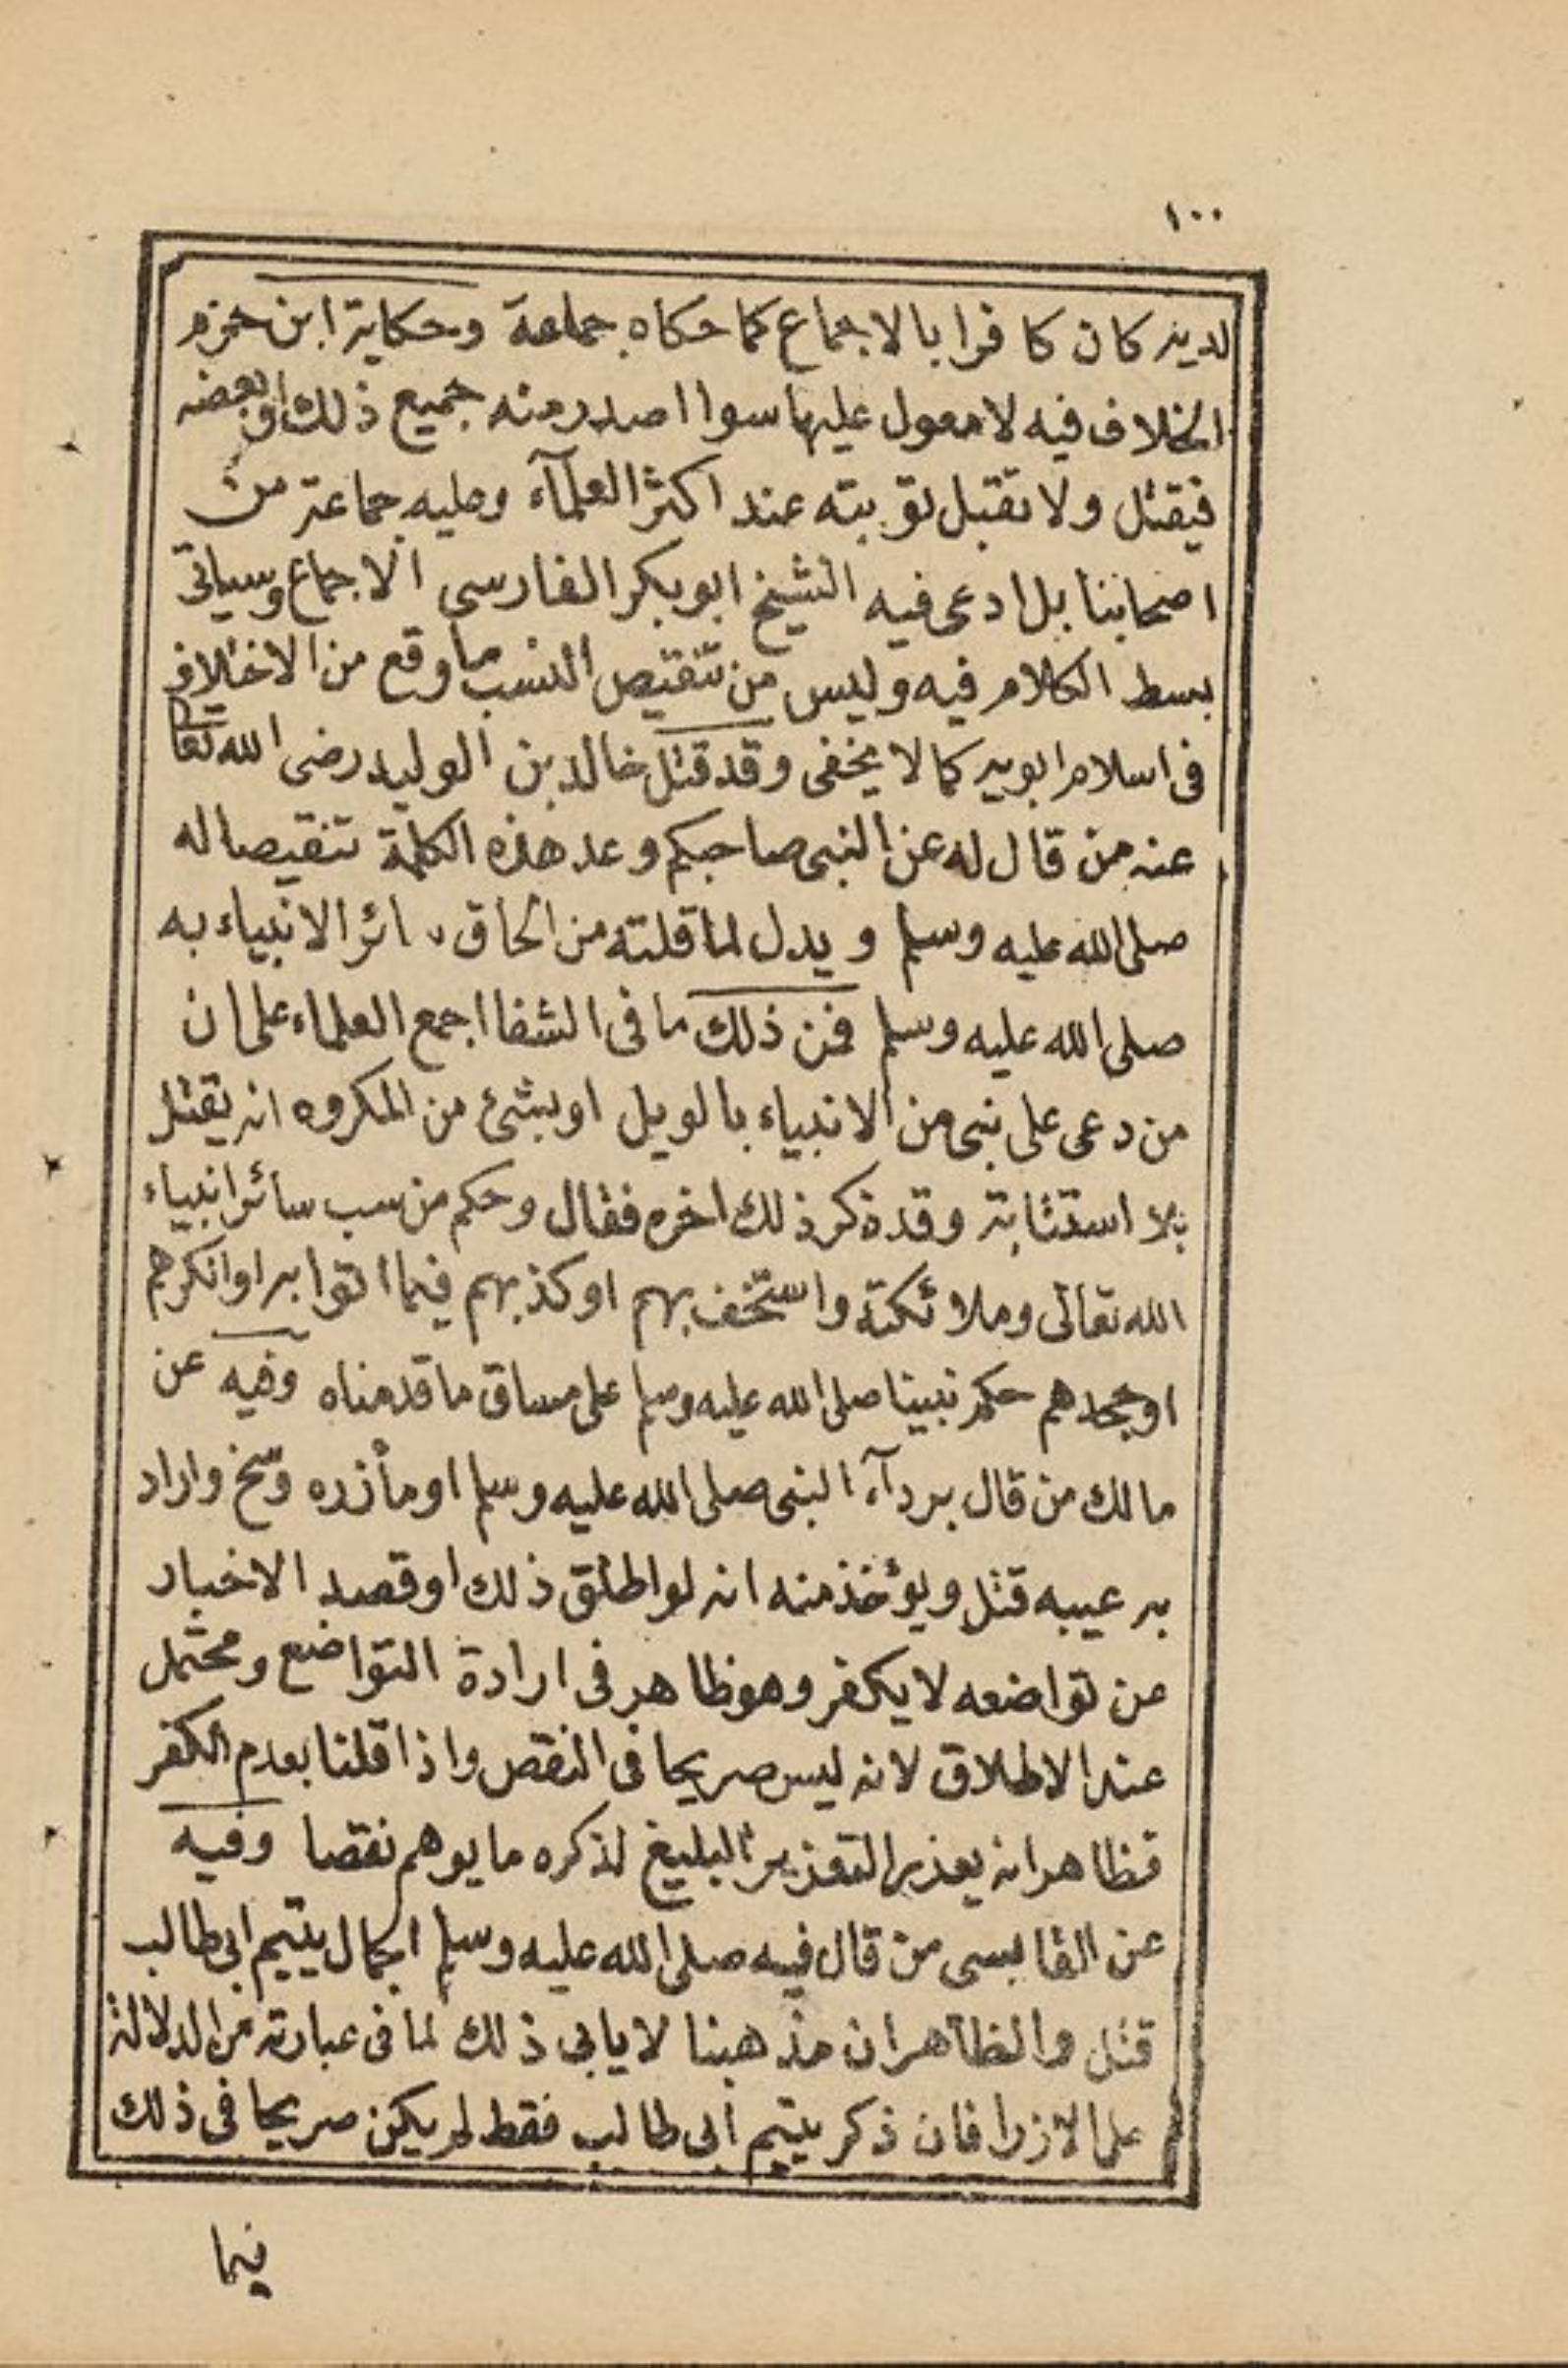 ١٠٠
لديه كان كافرا بالاجماع كما حكاه جماعة وحكاية ابن حزم
الخلاف فيه لا معول عليها سواا صدر منه جميع ذلك او بعضه
فيقتل ولا تقبل توبته عند اكثر العلمآء وعليه جماعة من
اصحابنا بل ادعى فيه الشيخ ابو بكر الفارسى الاجماع وسياتى
بسط الكلام فيه وليس من تنقيص النسب ما وقع من الاختلاف
فى اسلام ابويه كما لا يخفى وقد قتل خالد بن الوليد رضى الله تعا
عنه من قال له عن النبى صاحبكم وعد هذه الكلمة تنقيصا له
صلى الله عليه وسلم ويدل لما قلته من الحاق سائر الانبياء به
صلى الله عليه وسلم فمن ذلك ما فى الشفا اجمع العلماء على ان
من دعى على نبى من الانبياء بالويل او بشئ من المكروه انه يقتل
بلا استثابة وقد ذكر ذلك اخره فقال وحكم من سب سائر انبياء
الله تعالى وملائكته واستخف بهم او كذبهم فيما اتوا به او انكرهم
او جحدهم حكم نبينا صلى الله عليه وسلم على مساق ما قدمناه وفيه عن
مالك من قال بردآء النبى صلى الله عليه وسلم او مأزره وسخ واراد
به عيبه قتل ويؤخذ منه انه لو اطلق ذلك او قصد الاخبار
عن تواضعه لا يكفر وهو ظاهر فى ارادة التواضع ومحتمل
عند الاطلاق لانه ليس صريحا فى النقص واذا قلنا بعدم الكفر
فظاهر انه يعذر التعذير البليغ لذكره ما يوهم نقصا وفيه
عن القابسى من قال فيه صلى الله عليه وسلم الجمال يتيم ابى طالب
قتل والظاهر ان مذهبنا لا يابى ذلك لما فى عبارته من الدلالة
على الازرا فان ذكر يتيم ابى طالب فقط لم يكن صريحا فى ذلك
فيما